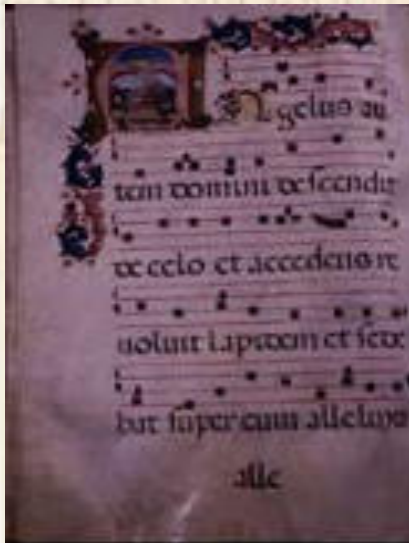 Angelus au
tem domini descendit
de celo et accedens re
uoluit lapidem et sede
bat super eum alleluya
alle